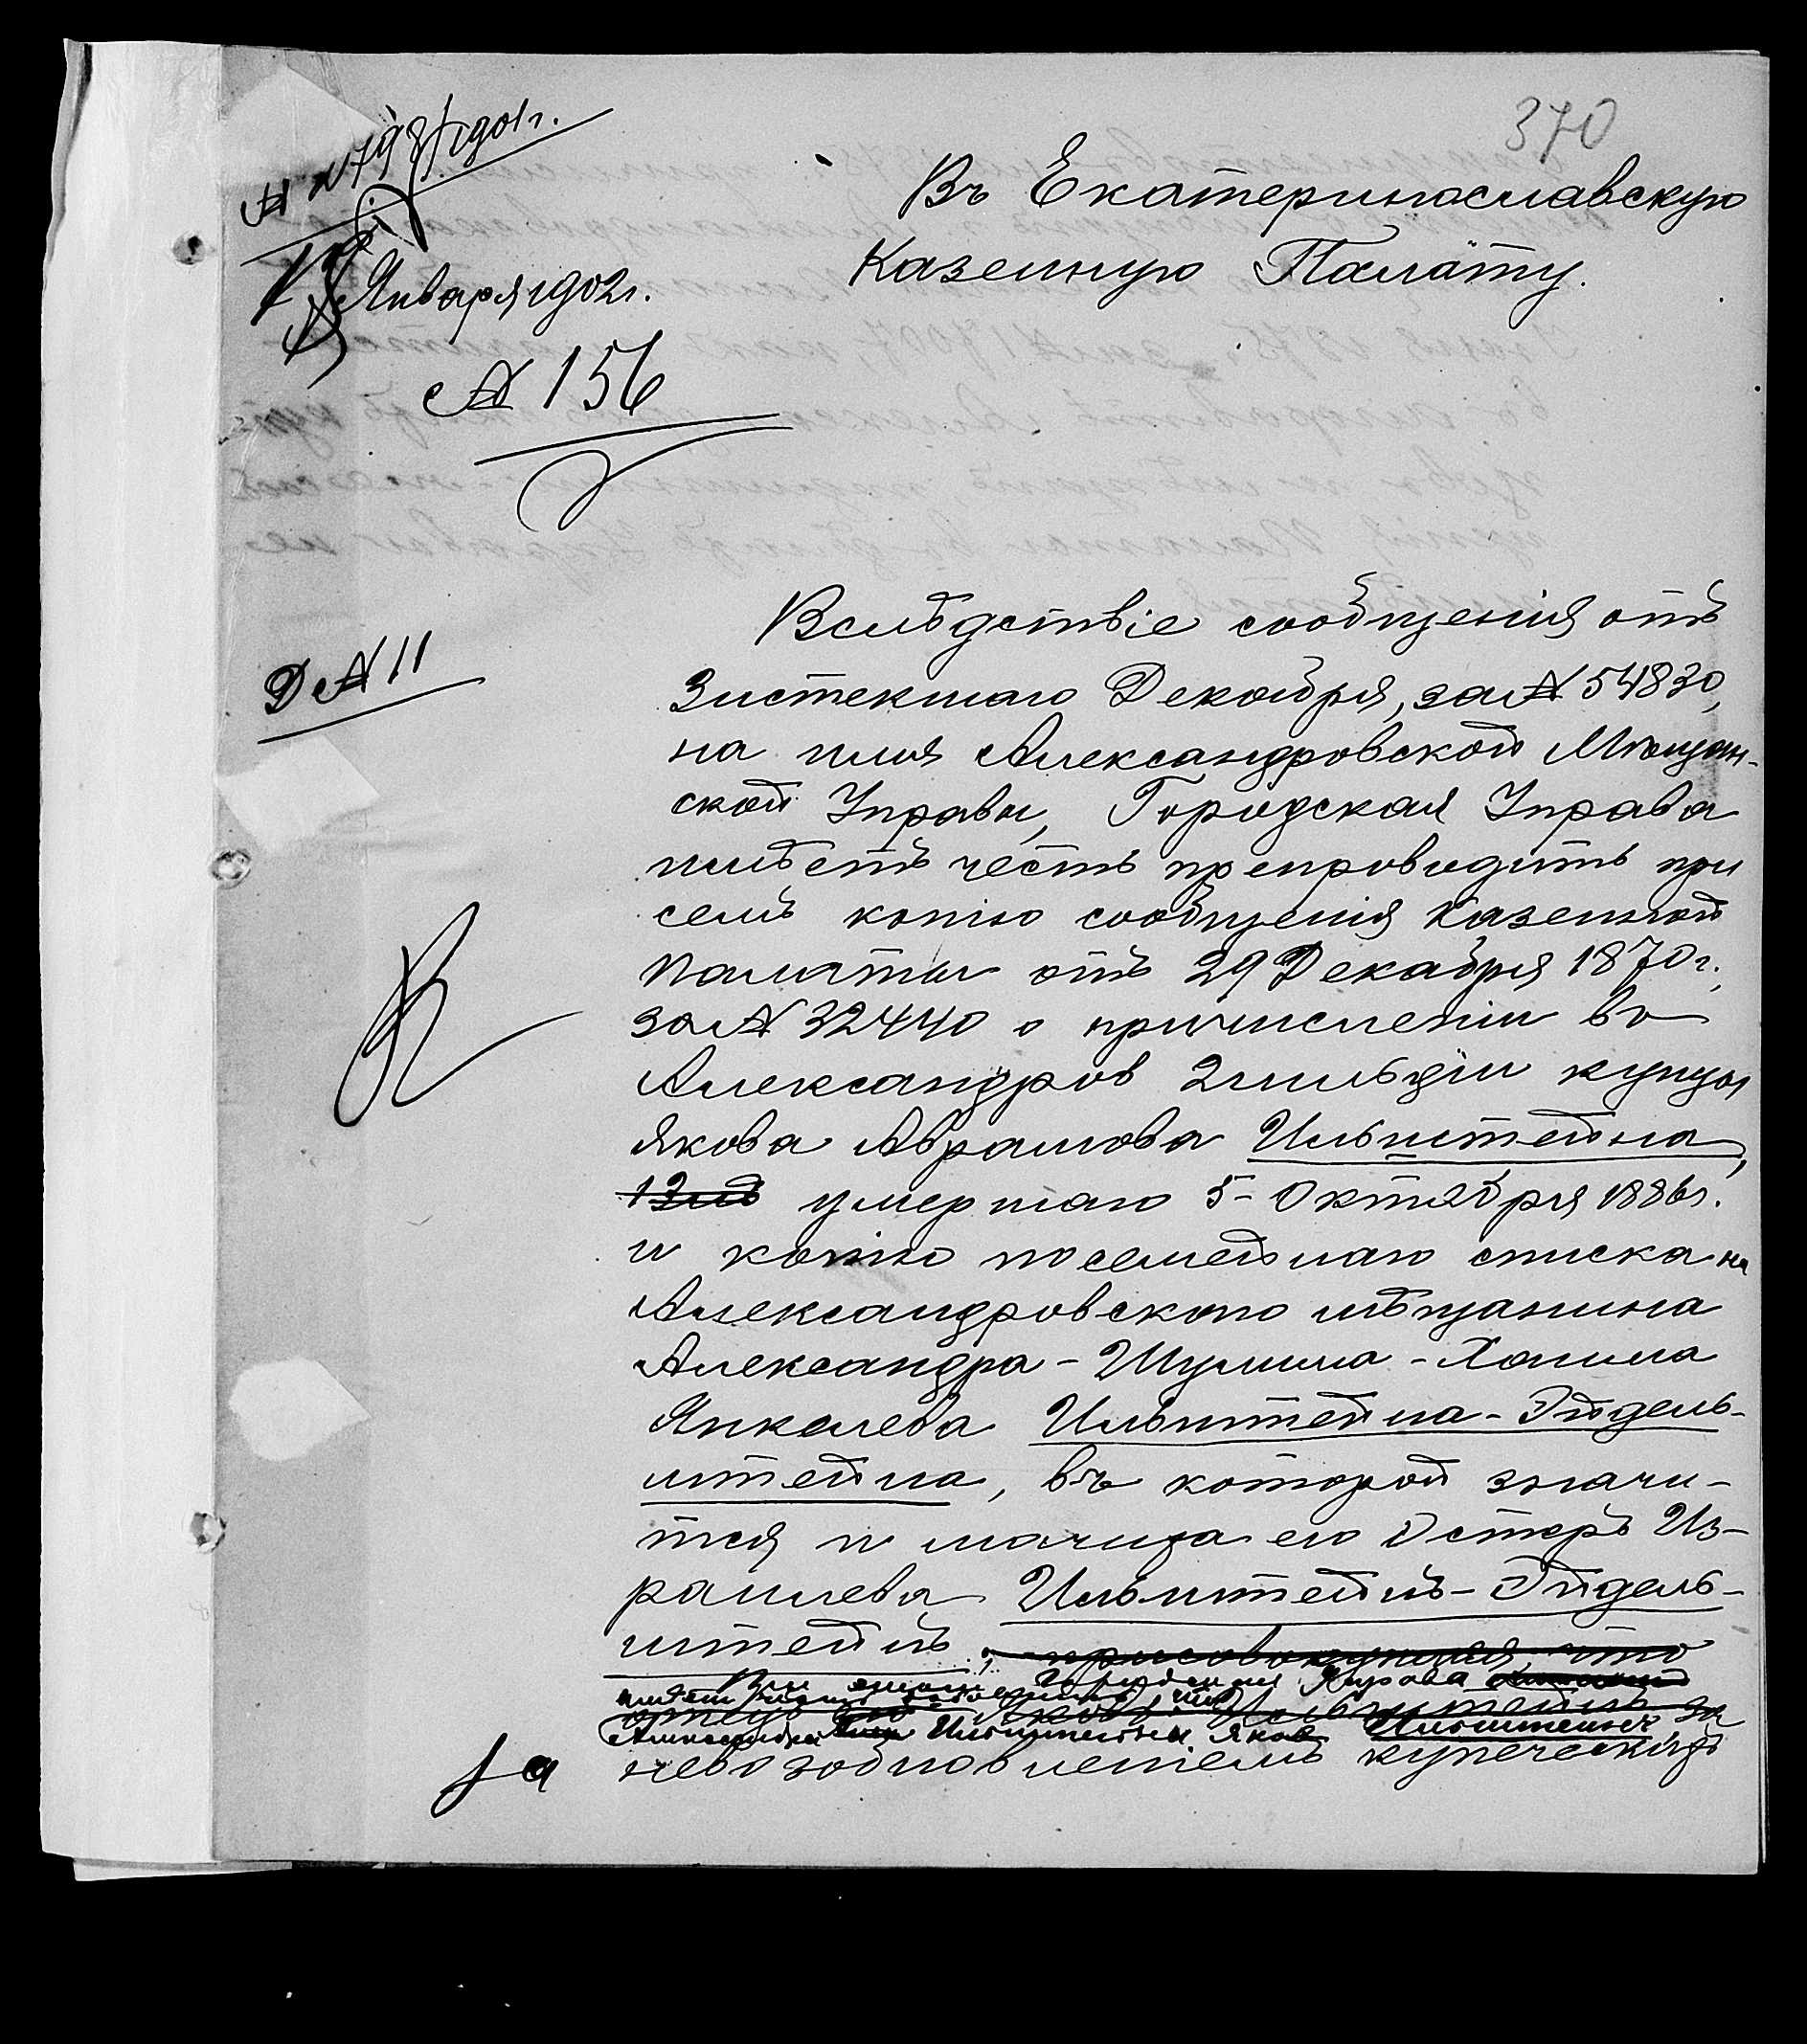 370
№ 798/1901г.
Января 1902г.
№ 156
Въ Екатеринославскую
Казенную Палату.
Д № 11
Вслѣдствіе сообщенія отъ
31 истекшаго Декабря, за № 54830,
на имя Александровской Мѣщан-
ской Управы, Городская Управа
имѣетъ честь препроводить при
семъ копію сообщенія Казенной
Палаты отъ 29 Декабря 1870г.,
за № 32440 о причисленіи въ
Александров 2 гильдіи купца
Якова Абрамова Ильштейна,
умершаго 5 Октября 1886г.
и копію посемейнаго списка на
Александровского мѣщанина
Александра-Шулима-Хаима
Янкелева Ильштейна-Эйдель-
штейна, въ которой значи-
тся и мачиха его Эстеръ Из-
раилева Ильштейнъ-Эйдель-
штейнъ, присовокупляя, что
При этомъ Городская Управа
имѣетъ честь, что
отецъ его Яковъ Ильштейнъ за
Александра Ильштейна Яков Ильштейнъ
невозобновленіемъ купеческихъ